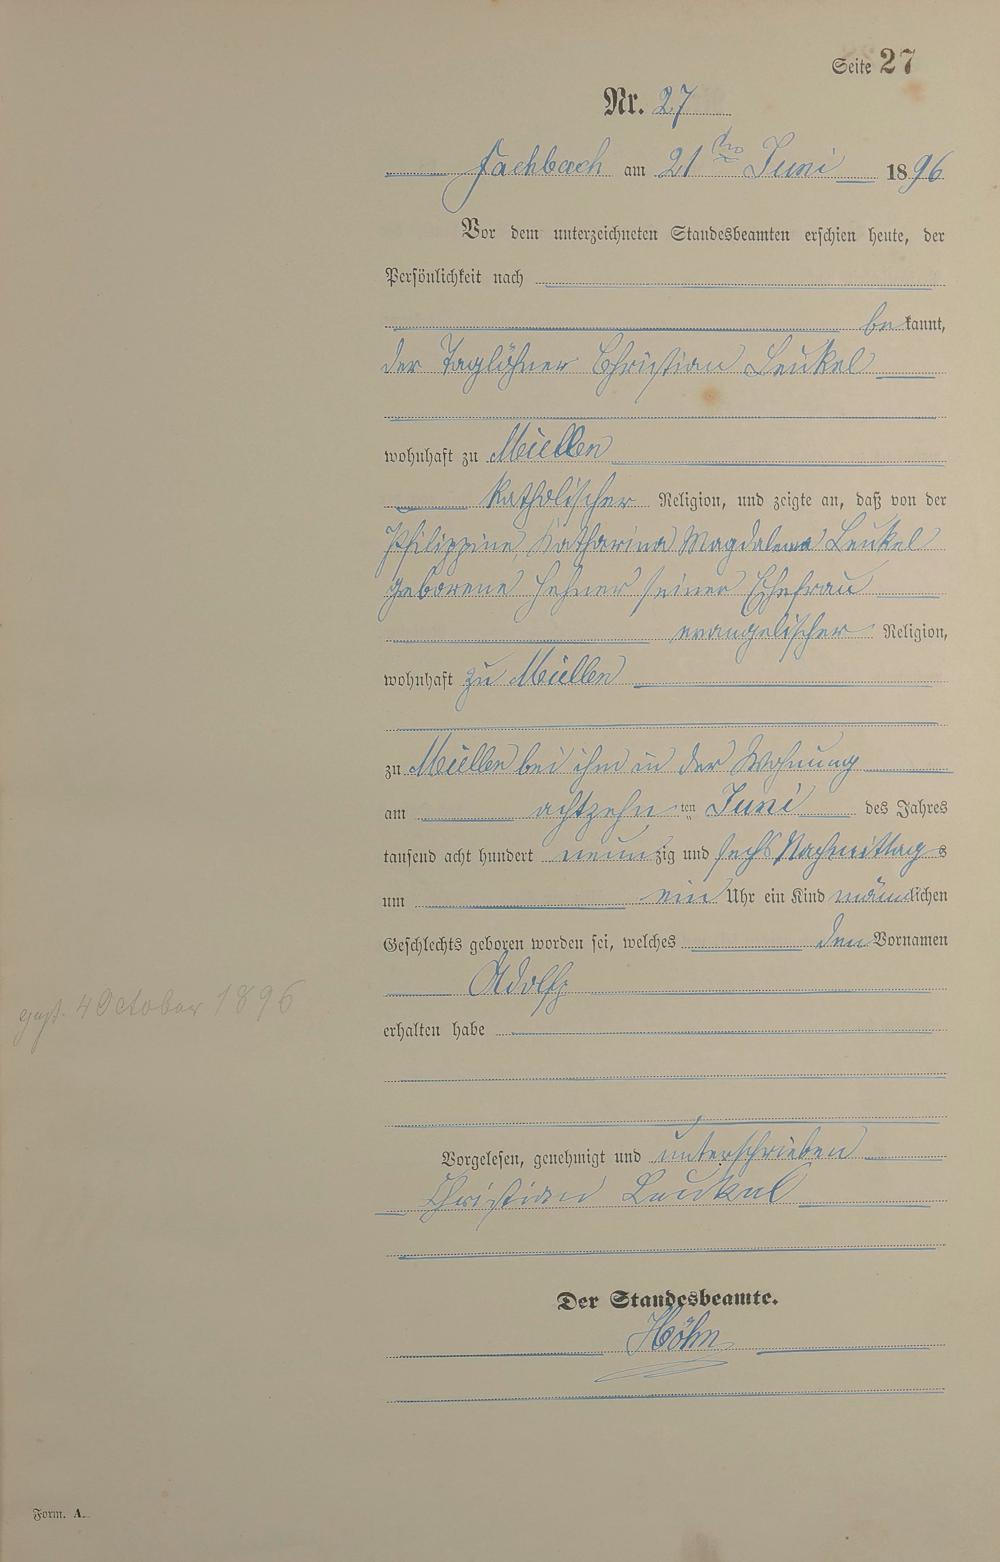 Seite 27
Nr. 27
Fachbach am 21ten Juni 1896
Vor dem unterzeichneten Standesbeamten erschien heute, der
Persönlichkeit nach
bekannt,
der Taglöhner Christian Leukel
wohnhaft zu Miellen
katholischer Religion, und zeigte an, daß von der
Philippine Katharina Magdalena Leukel
geborene Hehner seiner Ehefrau
evangelischer Religion,
wohnhaft zu Miellen
zu Miellen bei ihm in der Wohnung
am achtzehnten Juni des Jahres
tausend acht hundert neunzig und sechs Nachmittags
um ein Uhr ein Kind männlichen
Geschlechts geboren worden sei, welches den Vornamen
Adolf
4 October 1896
erhalten habe
Vorgelesen, genehmigt und unterschrieben
Christian Leukel
Der Standesbeamte.
Höhn
Form. A.